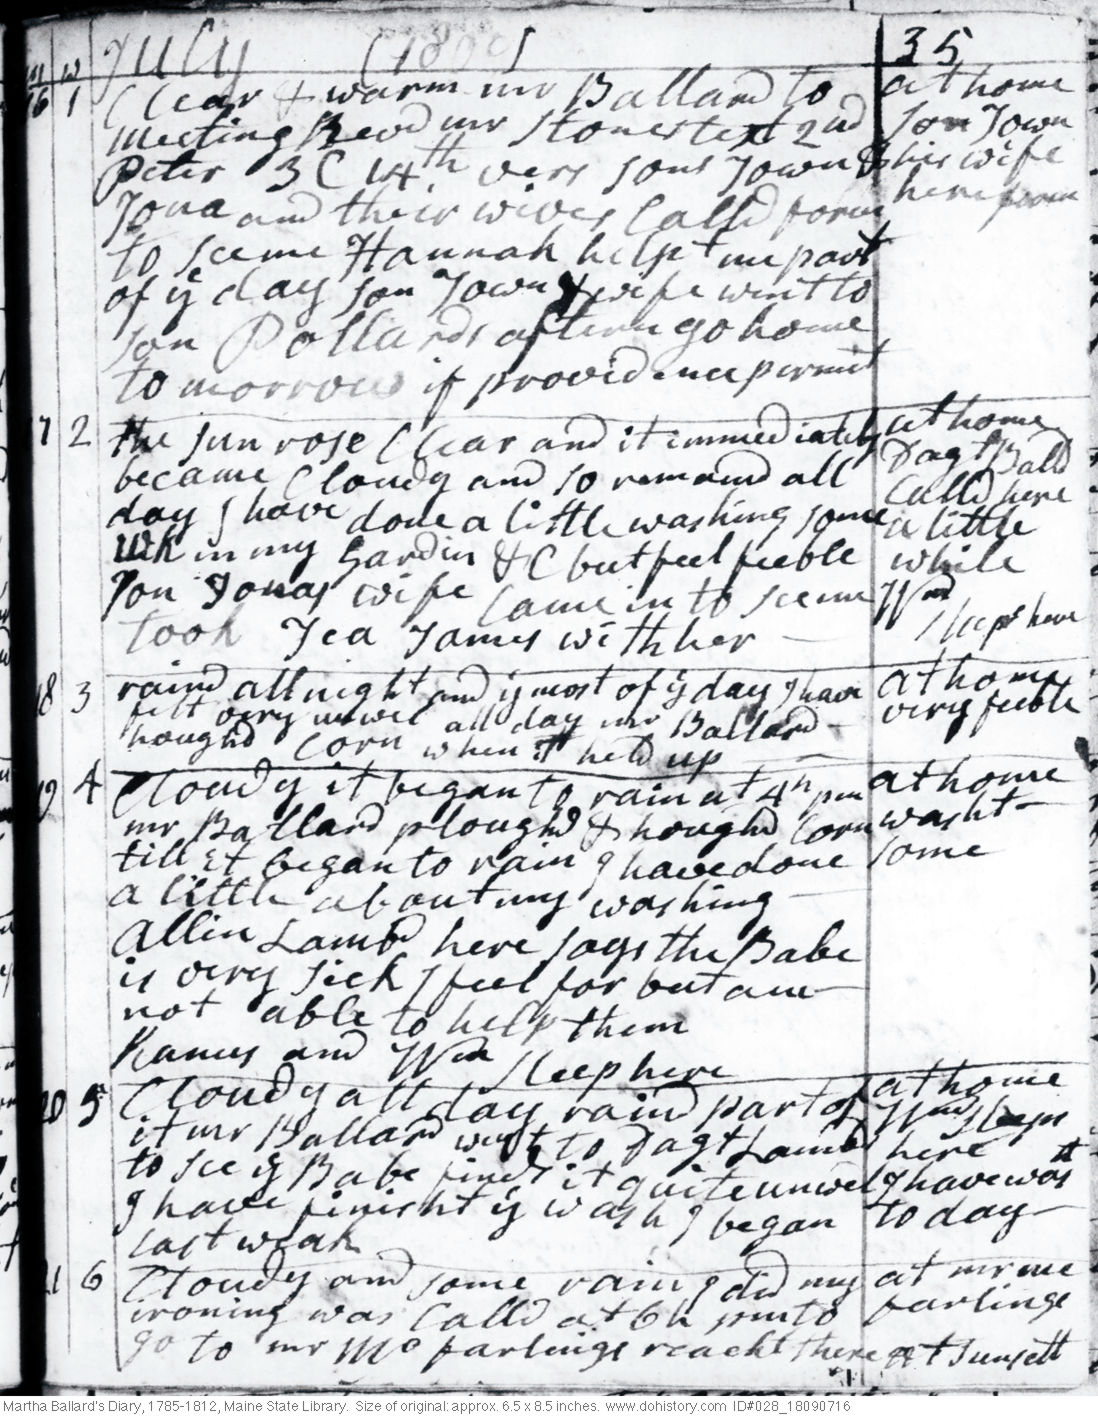 m w July (1809) 35
16 1 Clear & warm mr Ballard to at home
meeting Revd mr Stones text 2nd son Town
Peter 3 C 14th vers sons Town & his wife
Jona and their wives Calld form here forn
to see me Hannah helpt me part
of ye day son Town & wife went to
son Pollards aftern go home
to morrow if providence permit
17 2 the sun rose Clear and it immediately at home
became Cloudy and so remaind all Dagt Balld
day I have done a little washing some Calld here
wk in my Gardin &C but feel feeble a little while
son Jonas wife Came in to see me Wm
took Tea James with her sleeps here
18 3 raind all night and ye most of ye day I have at home
felt very unwel all day mr Ballard very feeble
houghd Corn when it held up
19 4 Cloudy it began to rain at 4h pm at home
mr Ballard ploughd & houghd Corn washt
till it began to rain I have done some
a little about my washing
Allin Lambd here says the Babe
is very sick I feel for but am
not able to help them
and Wm sleep here
20 5 Cloudy all day raind part of at home
it mr Ballard went to Dagt Lambd Wm sleeps
to see ye Babe finds it quite unwel here
I have finisht ye wash I began I have wast
last weak to day
21 6 Cloudy and some rain I did my at mr mc
ironing was Calld at 6h pm to farlings
go to mr Mc farlings reacht there at sunsett
Martha Ballard's Diary, 1785-1812, Maine State Library. Size of original: approx. 6.5 x 8.5 inches. www.dohistory.com ID#028_18090716